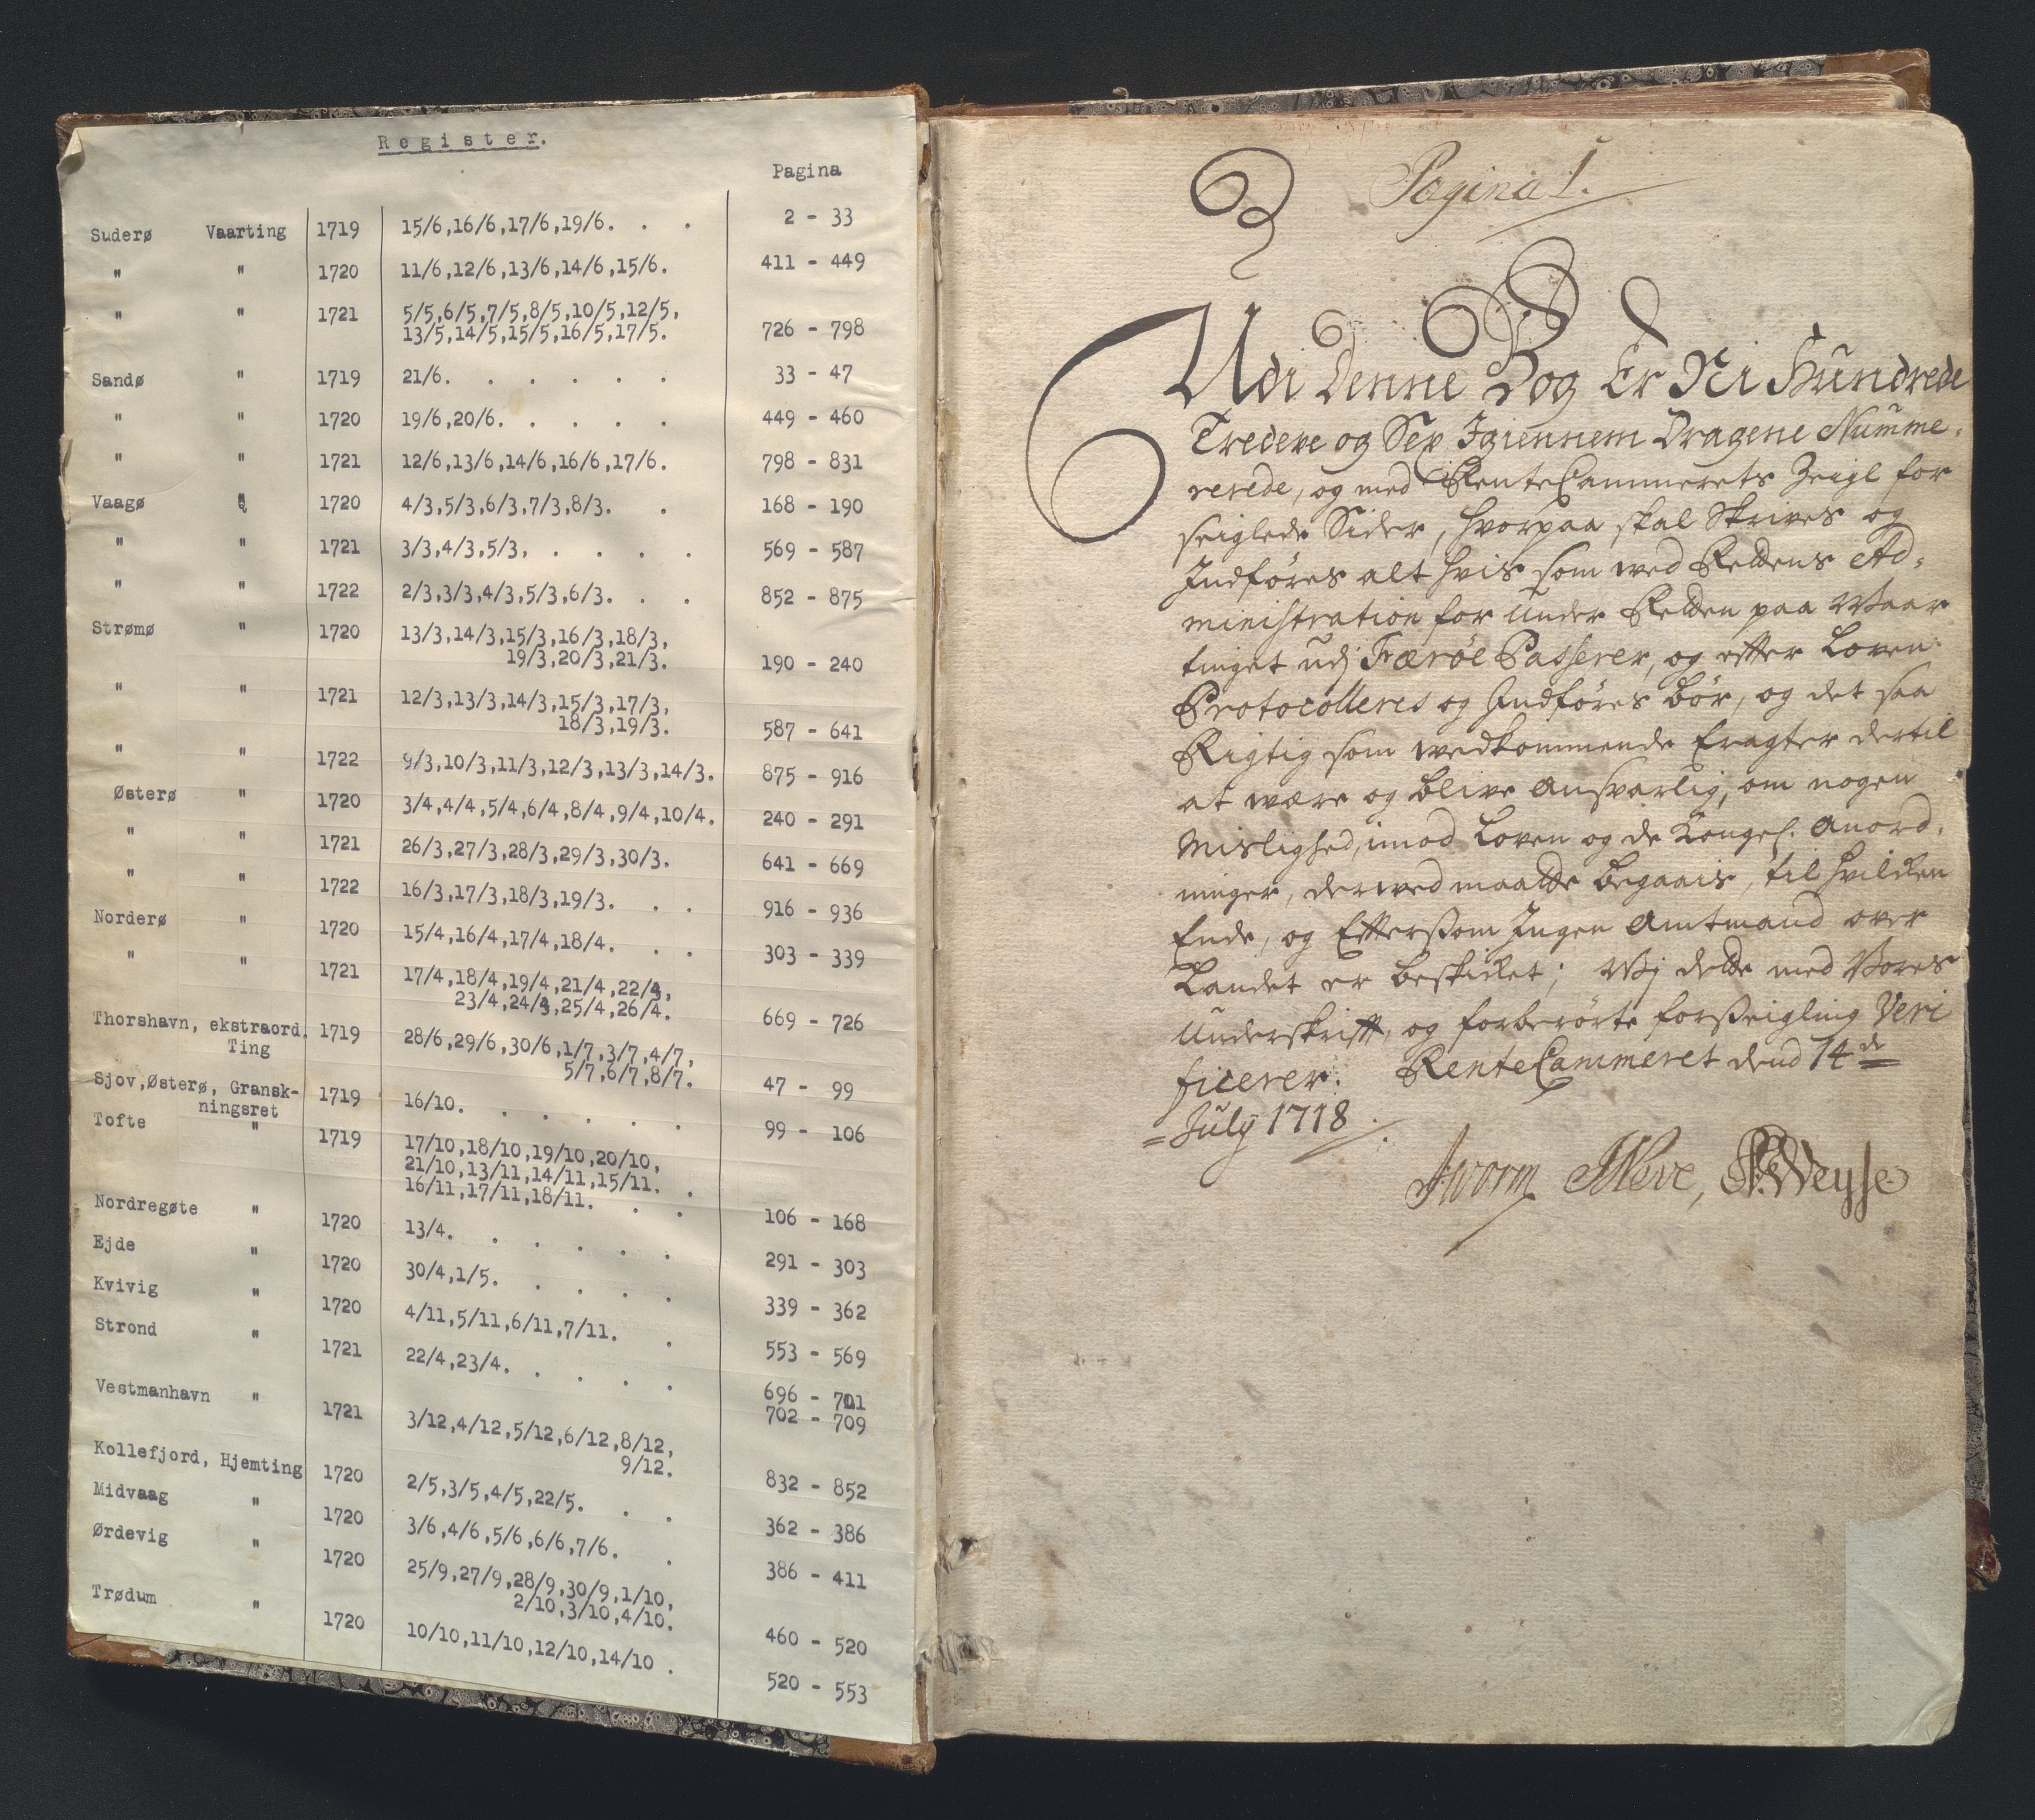 Register.
Pagina
Suderø Vaarting 1719 15/6,16/6,17/6,19/6. . . 2 - 33
" " 1720 11/6,12/6,13/6,14/6,15/6. 411 - 449
" " 1721 5/5,6/5,7/5,8/5,10/5,12/5,
13/5,14/5,15/5,16/5,17/5. 726 - 798
Sandø " 1719 21/6. . . . . . 33 - 47
" " 1720 19/6,20/6. . . . . 449 - 460
" " 1721 12/6,13/6,14/6,16/6,17/6. 798 - 831
Vaagø " 1720 4/3,5/3,6/3,7/3,8/3. . 168 - 190
" " 1721 3/3,4/3,5/3. . . . . 569 - 587
" " 1722 2/3,3/3,4/3,5/3,6/3. . . 852 - 875
Strømø " 1720 13/3,14/3,15/3,16/3,18/3,
19/3,20/3,21/3. 190 - 240
" " 1721 12/3,13/3,14/3,15/3,17/3,
18/3,19/3. 587 - 641
" " 1722 9/3,10/3,11/3,12/3,13/3,14/3. 875 - 916
Østerø " 1720 3/4,4/4,5/4,6/4,8/4,9/4,10/4. 240 - 291
" " 1721 26/3,27/3,28/3,29/3,30/3. 641 - 669
" " 1722 16/3,17/3,18/3,19/3. . . 916 - 936
Norderø " 1720 15/4,16/4,17/4,18/4. . . 303 - 339
" " 1721 17/4,18/4,19/4,21/4,22/4,
23/4,24/4,25/4,26/4. 669 - 726
Thorshavn, ekstraord. 1719 28/6,29/6,30/6,1/7,3/7,4/7,
Ting 5/7,6/7,8/7. 47 - 99
Sjov,Østerø, Gransk- 1719 16/10. . . . . . 99 - 106
ningsret
Tofte " 1719 17/10,18/10,19/10,20/10,
21/10,13/11,14/11,15/11. .
16/11,17/11,18/11. . . 106 - 168
Nordregøte " 1720 13/4. . . . . . 291 - 303
Ejde " 1720 30/4,1/5. . . . . 339 - 362
Kvivig " 1720 4/11,5/11,6/11,7/11. . 553 - 569
Strond " 1721 22/4,23/4. . . . . 696 - 701
702 - 709
Vestmanhavn " 1721 3/12,4/12,5/12,6/12,8/12,
9/12. 832 - 852
Kollefjord, Hjemting 1720 2/5,3/5,4/5,22/5. . . 362 - 386
Midvaag " 1720 3/6,4/6,5/6,6/6,7/6. . 386 - 411
Ørdevig " 1720 25/9,27/9,28/9,30/9,1/10,
2/10,3/10,4/10. 460 - 520
Trødum " 1720 10/10,11/10,12/10,14/10 . 520 - 553
Pagina 1.
Udi Denne Bog Er Ni Hundrede
Tredeve og Sex Igiennem Dragene Numme-
rerede, og med RenteCammerets Zeigl for
seiglede Sider, hvorpaa skal Skrives og
Indføres alt hvis som ved Rettens Ad-
ministration for Under Retten paa Waar
tinget udj Færöe Passerer, og efter Loven
Protocolleres og Indføres bör, og det saa
Rigtig som vedkommende Eragter dertil
at være og blive Ansvarlig, om nogen
Mislighed, imod Loven og de Kongel. Anord-
ninger, derved maatte begaais, til hvilken
Ende, og Efftersom Ingen Amtmand over
Landet er beskicket; Wj dette med Vores
Underskrifft, og forberörte forseigling Veri
ficerer. RenteCammeret dend 14de
July 1718.
JWorm